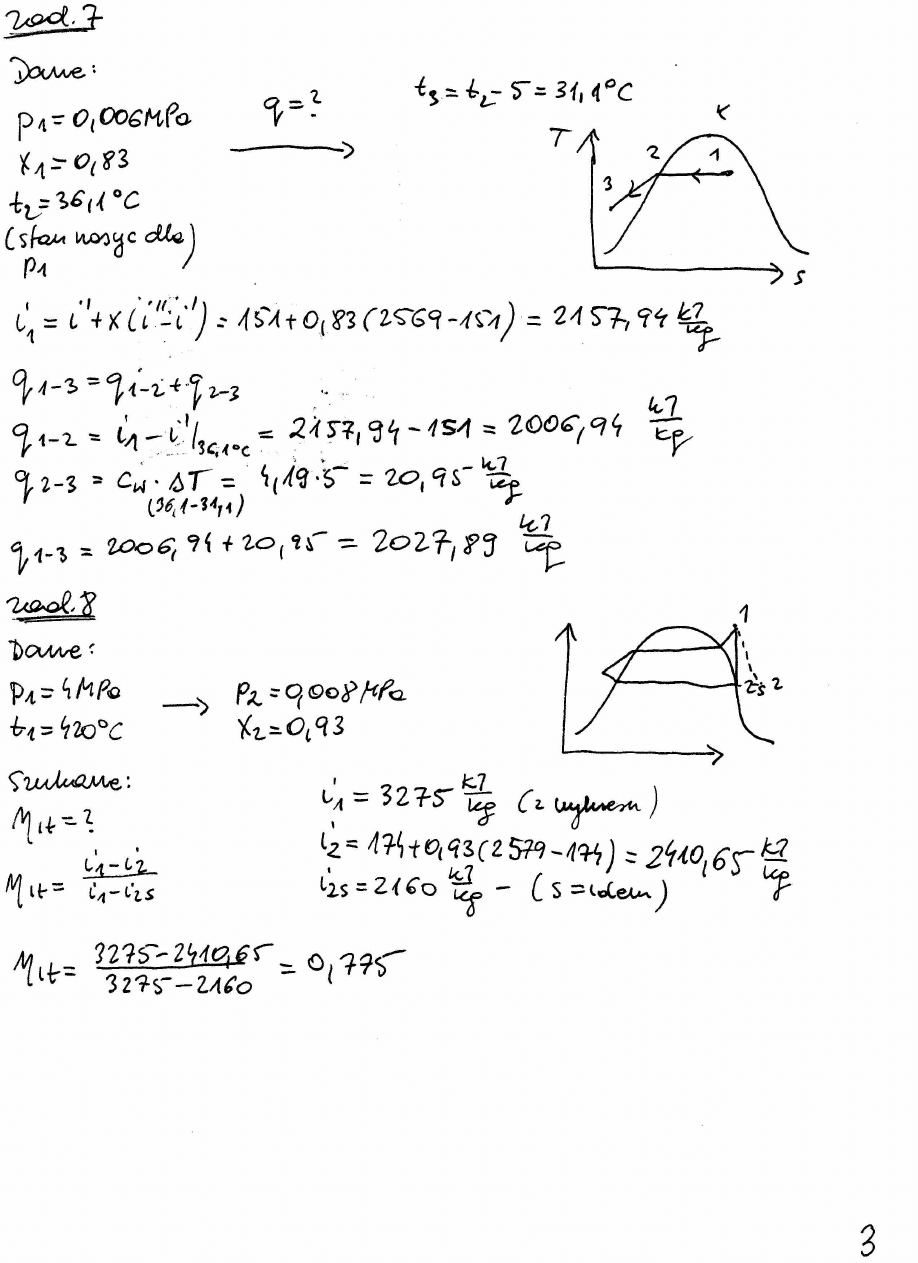 zad. 7
Dane:
p1=0,006MPa
x1=0,83
t2=36,1°C
(stan nasyc dla)
p1
q=?
t3=t2-5=31,1°C
T
K
2
1
3
s
i1=i'+x(i''-i')=151+0,83(2569-151)=2157,94 kJ/kg
q1-3=q1-2+q2-3
q1-2=i1-i'/36,1°C=2157,94-151=2006,94 kJ/kg
q2-3=cw·ΔT=4,19·5=20,95 kJ/kg
(36,1-31,1)
q1-3=2006,94+20,95=2027,89 kJ/kg
zad. 8
Dane:
p1=4MPa → p2=0,008MPa
t1=420°C x2=0,93
1
2s 2
Szukane:
ηit=?
ηit=i1-i2/i1-i2s
i1=3275 kJ/kg (z wykresu)
i2=174+0,93(2579-174)=2410,65 kJ/kg
i2s=2160 kJ/kg - (s=idem)
ηit=3275-2410,65/3275-2160=0,775
3